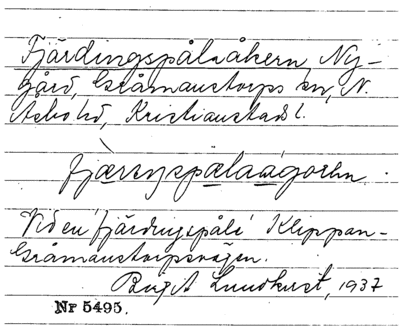 Fjärdingspålaåkern Ny-
gård, Gråmanstorps sn, N.
Åsbo hd, Kristianstads l.
fjærɳspælaágorhn.
Vid en 'fjärdingspåle' Klippan-
Gråmanstorpsvägen.
Birgit Lundkvist, 1937
Nr 5495.